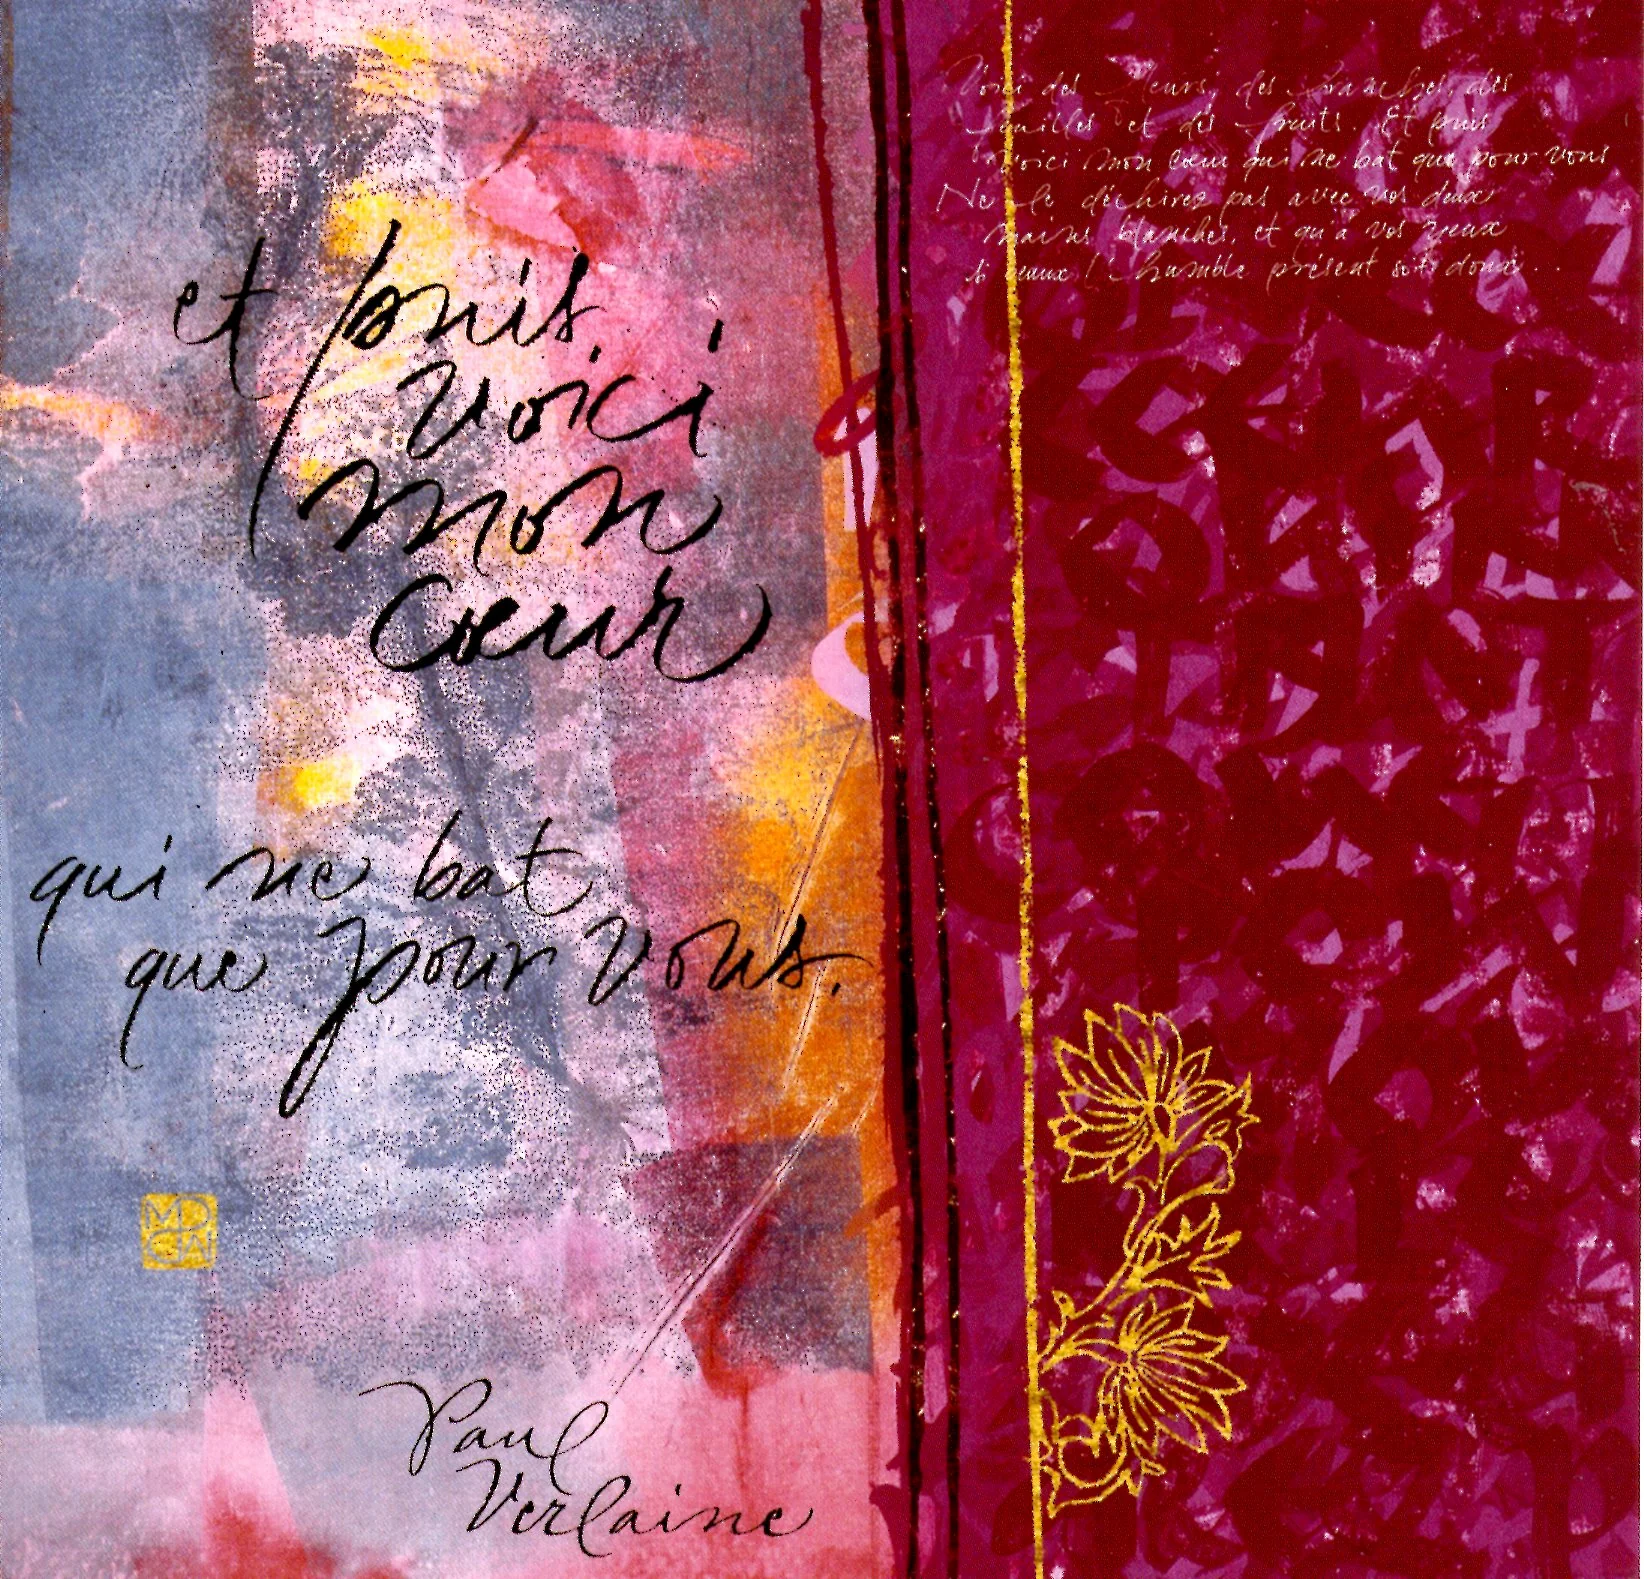 et puis,
voici
mon
cœur
qui ne bat
que pour vous.
Paul
Verlaine
Voici des fleurs, des branches, des
feuilles et des fruits. Et puis
voici mon cœur qui ne bat que pour vous
Ne le déchirez pas avec vos deux
mains blanches, et qu'à vos yeux
si beaux l'humble présent soit doux...